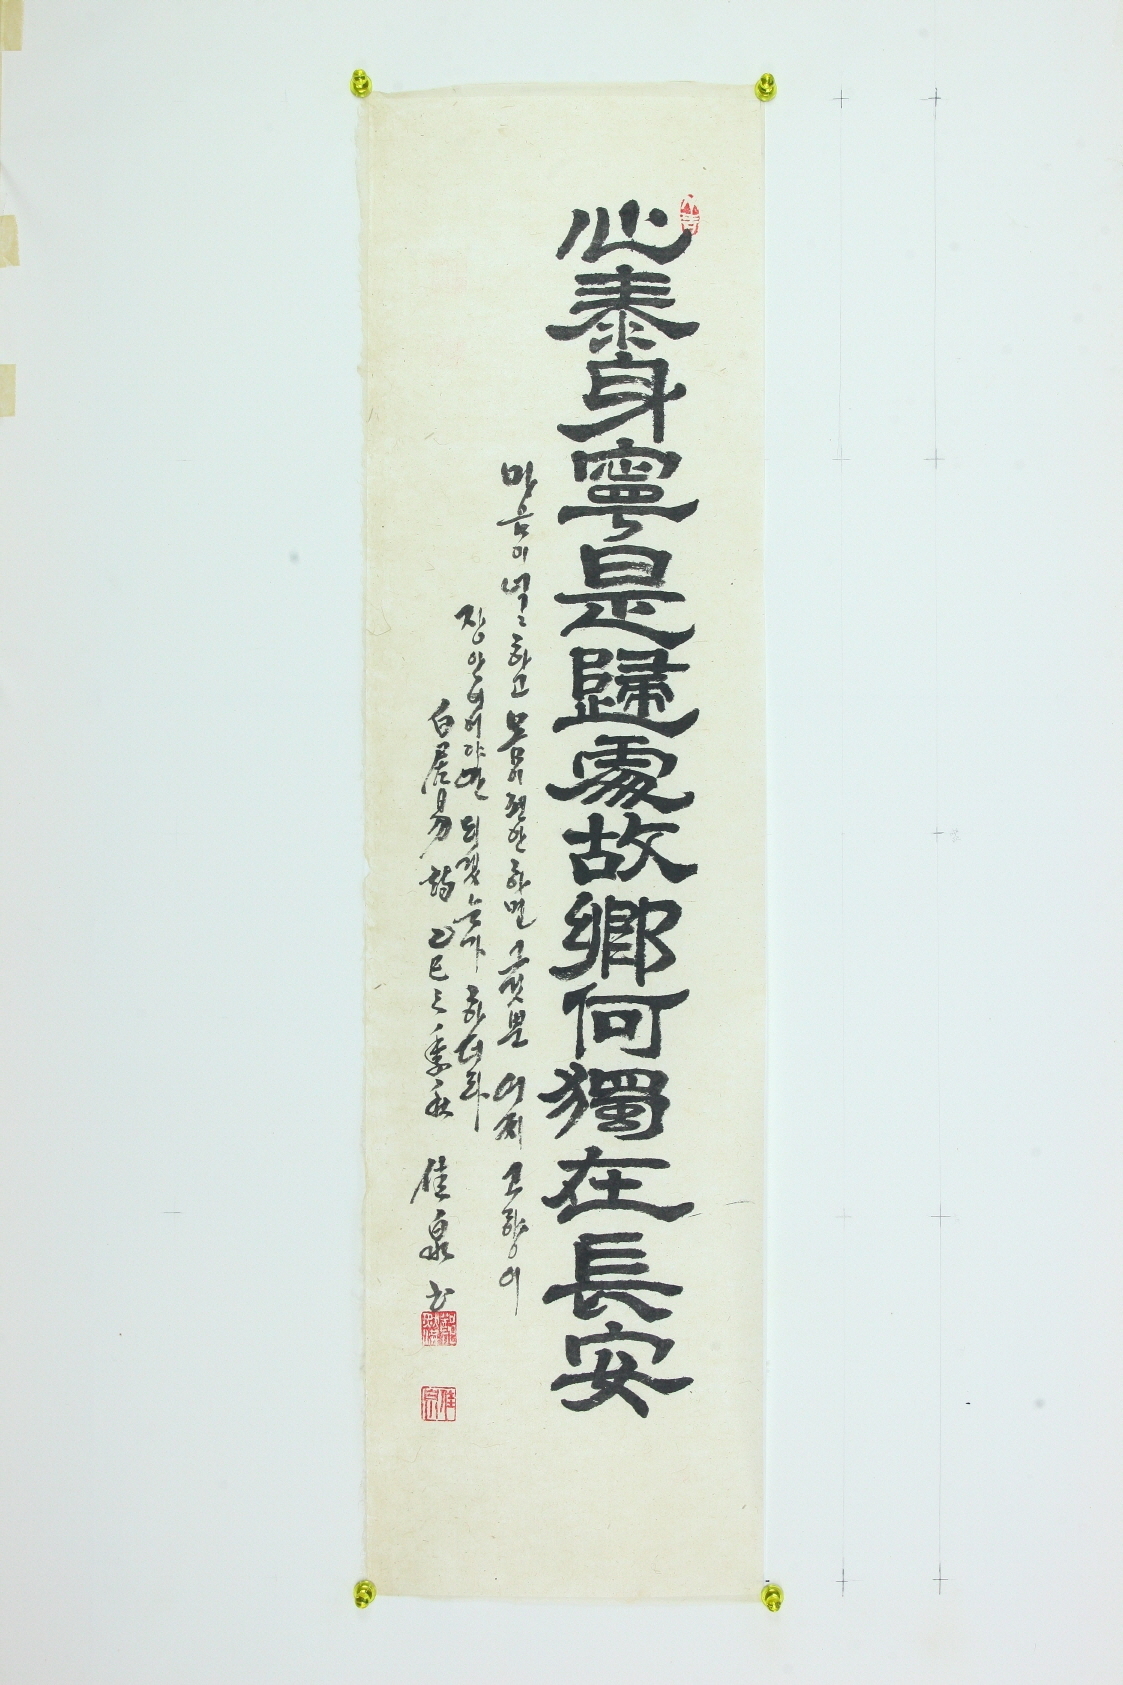 心泰身寧是歸處故鄉何獨在長安
마음이 넉넉하고 몸이 편안하면 그것뿐 어찌 고향이
장안에 만 되겠는가 하더라
白居易 詩 乙巳之季秋 佳泉 书